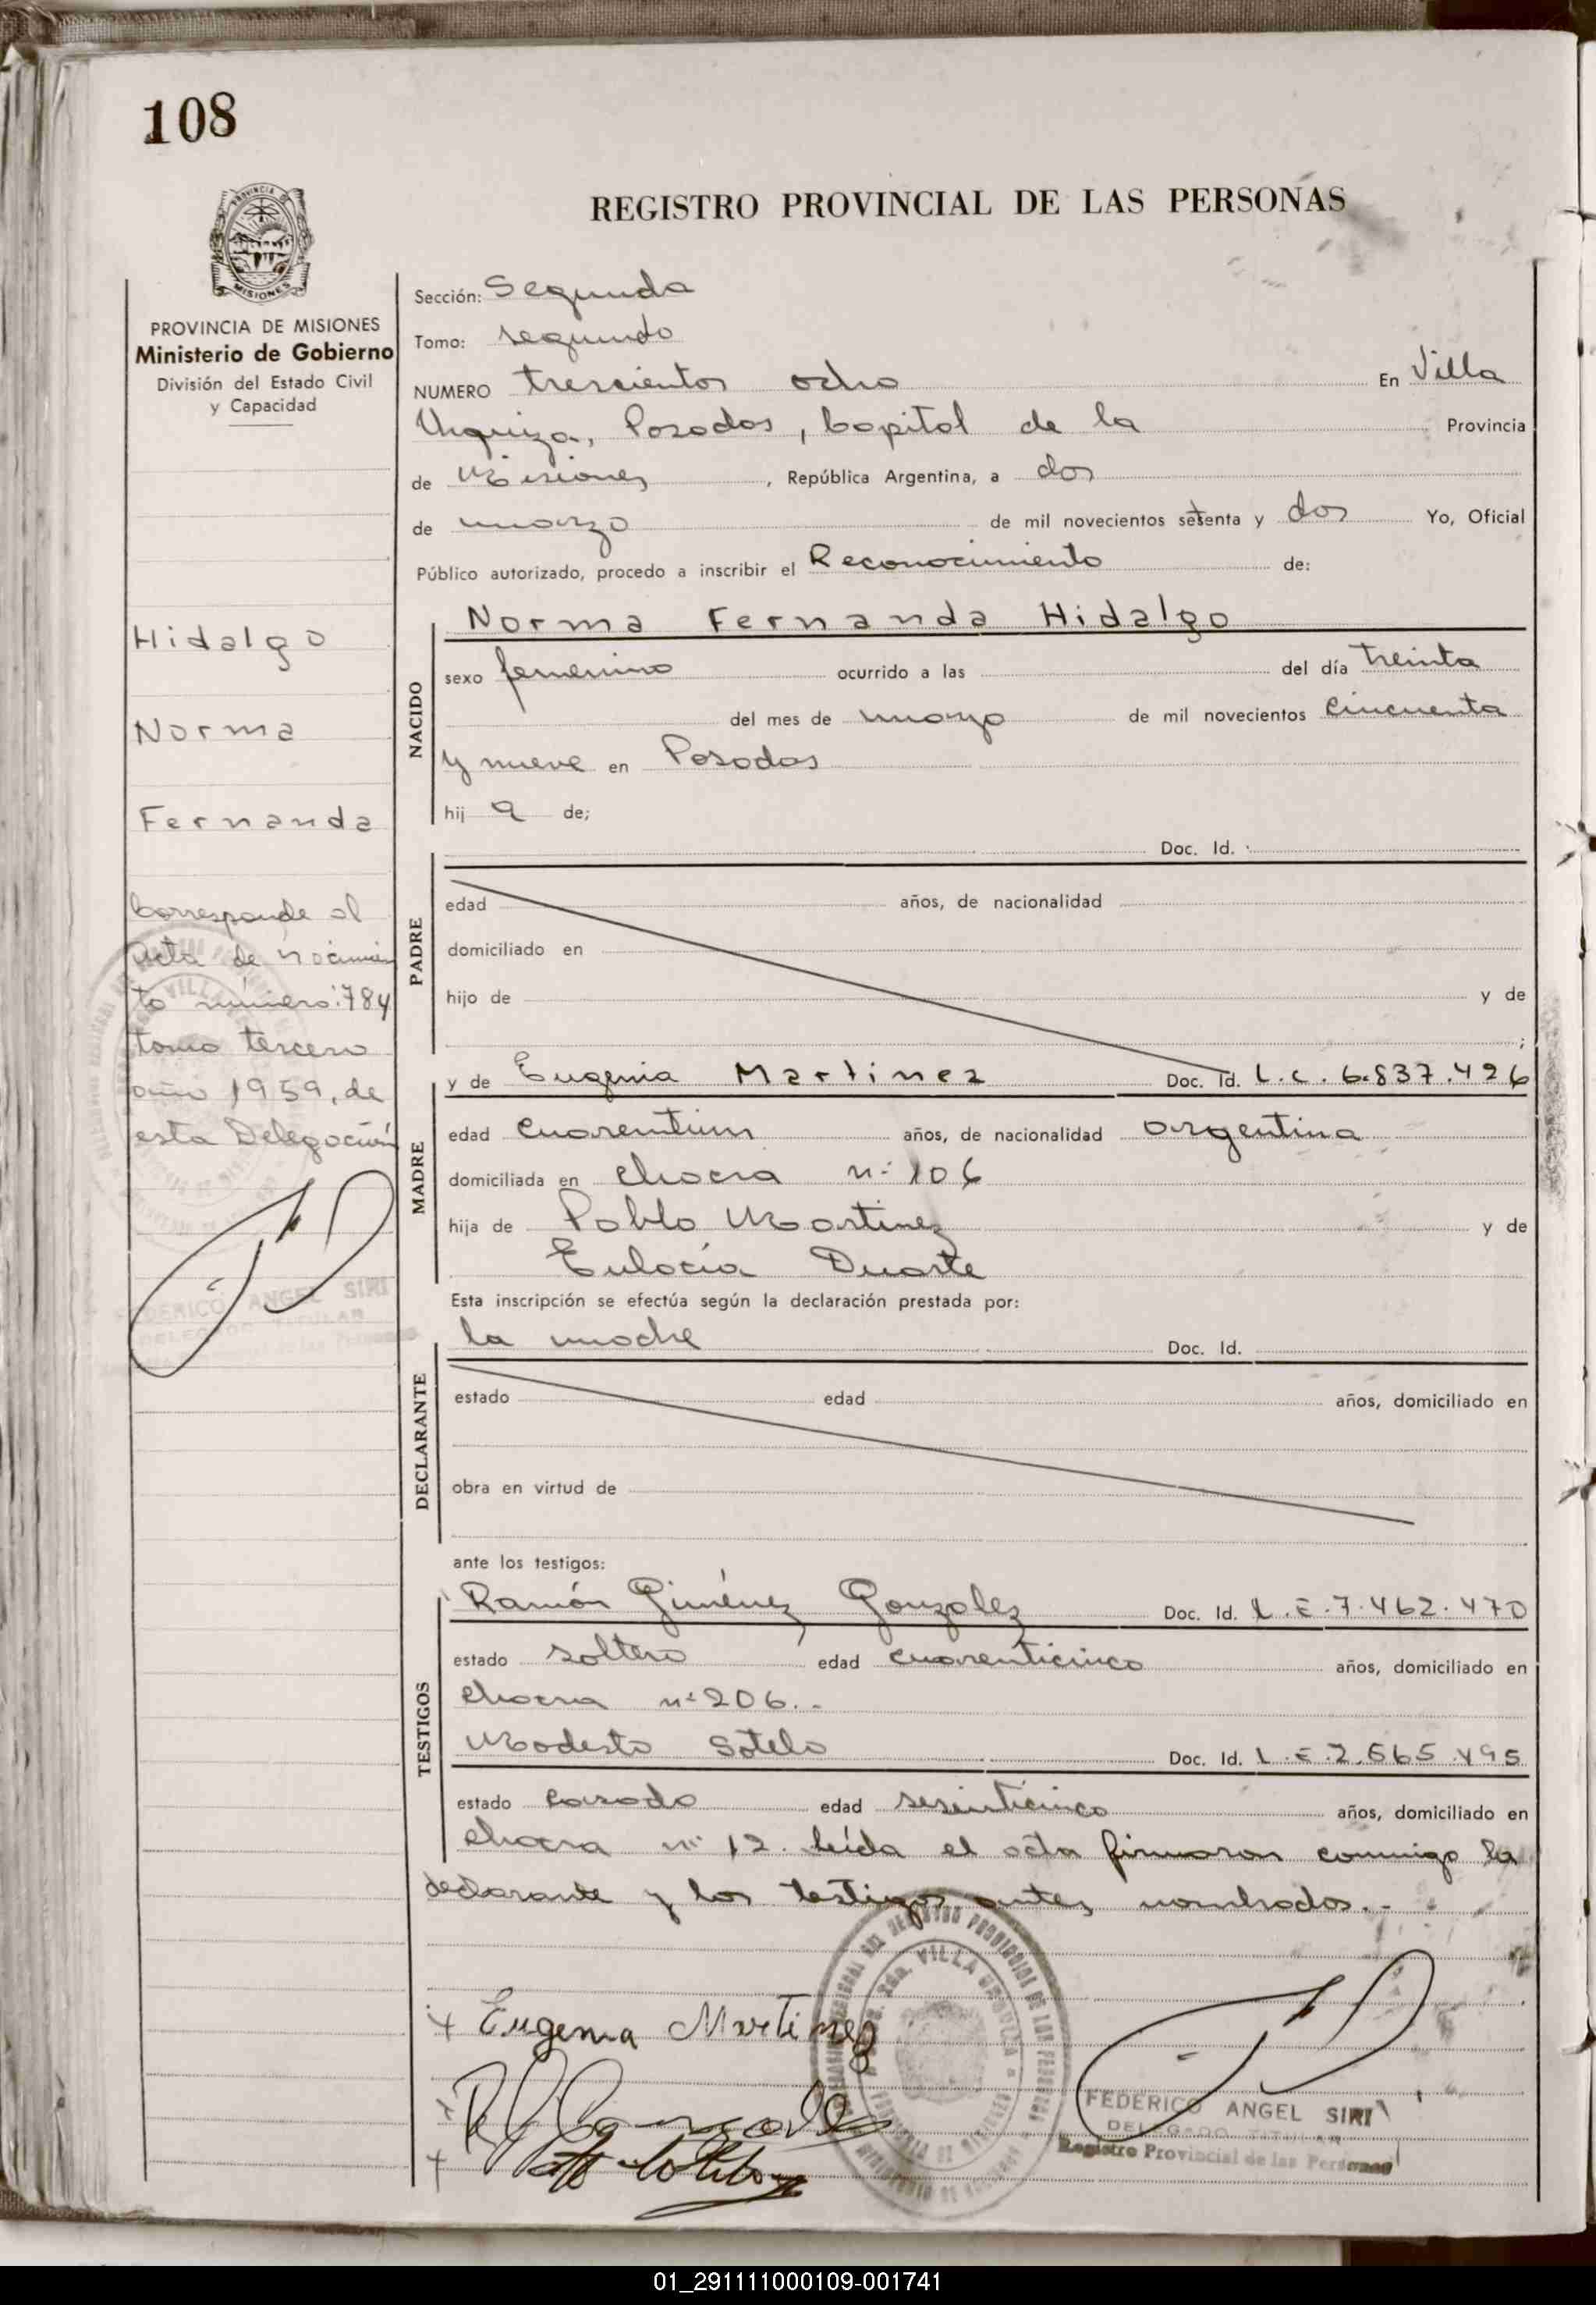 108
REGISTRO PROVINCIAL DE LAS PERSONAS
PROVINCIA DE MISIONES
Ministerio de Gobierno
División del Estado Civil
y Capacidad
Hidalgo
Norma
Fernanda
Corresponde al
acta de nacimien
to número: 784
tomo tercero
año 1959, de
esta Delegación
FEDERICO ANGEL SIRI
Sección: Segunda
Tomo: segundo
NUMERO trescientos ocho En Villa
Urquiza, Posadas, Capital de la Provincia
de Misiones, República Argentina, a dos
de marzo de mil novecientos setenta y dos Yo, Oficial
Público autorizado, procedo a inscribir el Reconocimiento de:
NACIDO
Norma Fernanda Hidalgo
sexo femenino ocurrido a las del día treinta
del mes de marzo de mil novecientos cincuenta
y nueve en Posadas
hij a de;
PADRE
Doc. Id.
edad años, de nacionalidad
domiciliado en
hijo de y de
;
MADRE
y de Eugenia Martinez Doc. Id. L.C. 6.837.426
edad cuarentiun años, de nacionalidad argentina
domiciliada en chacra n: 106
hija de Pablo Martinez y de
Eulocia Duarte
Esta inscripción se efectúa según la declaración prestada por:
la madre Doc. Id.
DECLARANTE
estado edad años, domiciliado en
obra en virtud de
ante los testigos:
TESTIGOS
Ramón Giménez Gonzalez Doc. Id. L.E. 7.462.470
estado soltero edad cuarenticinco años, domiciliado en
chacra n: 206.-
Modesto Sotelo Doc. Id. L.E. 2.565.495
estado casado edad sesenticinco años, domiciliado en
chacra n: 12. leída el acta firmaron conmigo la
declarante y los testigos antes nombrados.-
Eugenia Martinez
VILLA URQUIZA
FEDERICO ANGEL SIRI
DELEGADO TITULAR
Registro Provincial de las Personas
01_291111000109-001741